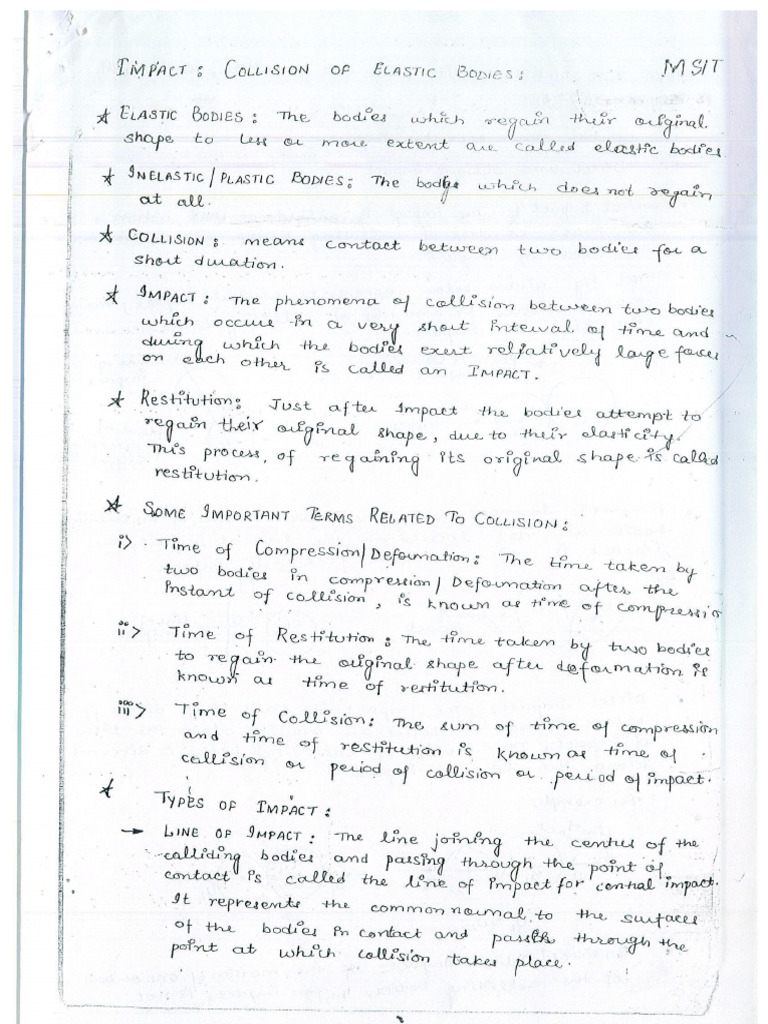 IMPACT: COLLISION OF ELASTIC BODIES: MSIT
* ELASTIC BODIES: The bodies which regain their original
shape to less or more extent are called elastic bodies
* INELASTIC/PLASTIC BODIES: The bodies which does not regain
at all.
* COLLISION: means contact between two bodies for a
short duration.
* IMPACT: The phenomena of collision between two bodies
which occure in a very short interval of time and
during which the bodies exert reliatively large forces
on each other is called an IMPACT.
* Restitution: Just after impact the bodies attempt to
regain their original shape, due to their elasticity.
This process, of regaining its original shape is called
restitution.
* SOME IMPORTANT TERMS RELATED TO COLLISION:
i> Time of Compression/Deformation: The time taken by
two bodies in compression/Deformation after the
instant of collision, is known as time of compressio
ii> Time of Restitution: The time taken by two bodies
to regain the original shape after deformation is
known as time of restitution.
iii> Time of Collision: The sum of time of compression
and time of restitution is known as time of
collision or period of collision or period of impact.
* TYPES OF IMPACT:
→ LINE OF IMPACT: The line joining the centres of the
calliding bodies and passing through the point of
contact is called the line of impact for central impact.
It represents the common normal to the surfaces
of the bodies in contact and passes through the
point at which collision takes place.